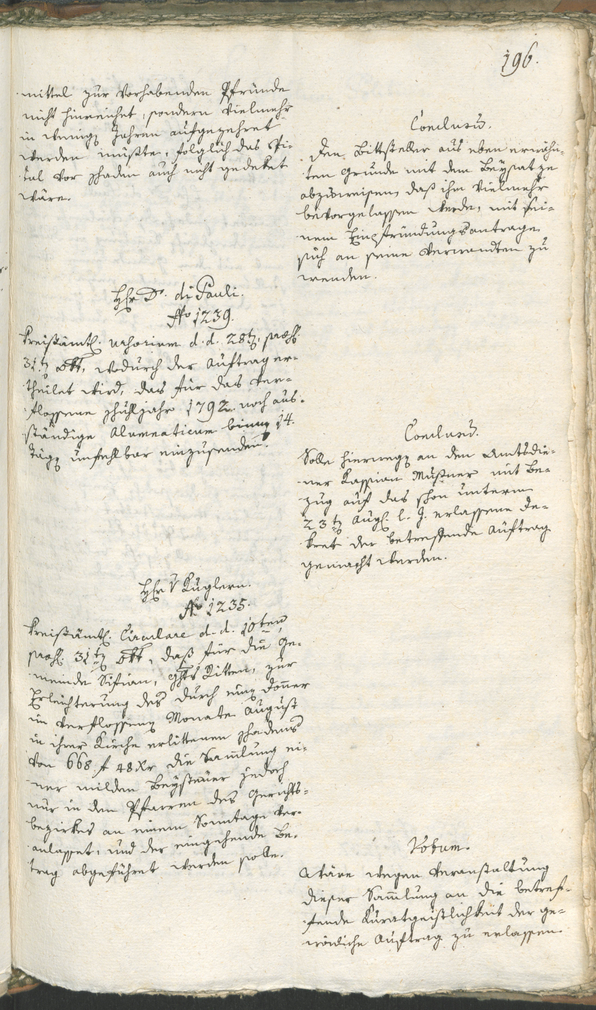 196.
mittel zur vorhabenden Pfründe
nicht hinreichet, sondern vielmehr
in wenig Jahren aufgezehret
werden müßte, folglich das Spi-
tal vor Schaden auch nicht gedeket
wäre.
Conclusum.
Den Bittsteller aus eben erwähn-
ten Grunde mit dem Beysatze
abzuweisen, daß ihm vielmehr
bevorgelassen werde, mit sei-
nem Einpfründungsantrage
sich an seine Verwandten zu
wenden.
Hr Dr. di Pauli.
No 1239.
Kreisämtl. d. d. 28t, praes.
31t 8br, wodurch der Auftrag er-
theilet wird, das für das ver-
flossene Schuljahr 1792 noch aus-
ständige Alumnaticum binnen 14.
Täg unfehlbar einzusenden.
Conclusum.
Solle hierweg an den Amtsdie-
ner Kassian Mußner mit Be-
zug auf das schon unterm
23t Augs. l. J. erlassene De-
kret der betreffende Auftrag
gemacht werden.
Hr v Kuglern.
No 1235.
Kreisämtl. Circulare d. d. 10ten
praes. 31t 8br, daß für die Ge-
meinde Sifian, Ghts Ritten, zur
Erleichterung des durch ein Donner
im verflossen Monate August
in ihrer Kirche erlittenen Schadens
von 668 f 48 Kr die Samlung ei-
ner milden Beysteuer jedoch
nur in den Pfarren des Gerichts-
bezirkes an einem Sonntage ver-
anlasset, und der eingehende Be-
trag abgeführet werden solle.
Votum.
Wäre wegen Veranstaltung
dieser Samlung an die betref-
fende Kuratgeistlichkeit der ge-
wöhnliche Auftrag zu erlassen.